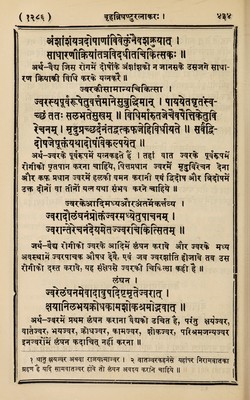 (१२८६) बृहन्निघण्टुरत्नाकरः। ४३४
अंशांशंयत्रदोषाणांविवेक्तुंनैवशक्नुयात् ।
साधारणींक्रियांतत्रविदधीतचिकित्सकः॥
अर्थ–वैद्य जिस रोगमें दोषोंके अंशांशको न जानसके उसजगे साधा-
रण क्रियाकी विधि करके यत्नकरै ॥
ज्वरकीसामान्यचिकित्सा
ज्वरस्यपूर्वरूपेतुवर्त्तमानेसुबुद्धिमान् । पाययेतघृतंस्व-
च्छं ततः सलभतेसुखम् ॥ विधिर्मारुतजेचैवपैत्तिकेतुवि-
रेचनम् । मृदुप्रच्छर्दनंतद्वत्कफजेहिविधीयते ॥ सर्वंद्वि-
दोषजेषूक्तंयथादोषंविकल्पयेत् ॥
अर्थ–ज्वरके पूर्वरूपमें यत्नकहते हैं । तहां वात ज्वरके पूर्वरूपमें
रोगीको स्वच्छ घृतपान करावे । पित्तप्रधान ज्वरमें मृदुविरेचन देना
और कफ प्रधान ज्वरमें हलकी वमन करानी एवं द्विदोष और त्रिदोषमें
उक्त दोनों वा तीनों यत्न यथा संभव करने चाहिये ॥
ज्वरकेआदिमध्यऔरअंतमेंकर्त्तव्य
ज्वरादौलंघनंप्रोक्तंज्वरमध्येतुपाचनम् ।
ज्वरान्तेरेचनंदेयमेतज्ज्वरचिकित्सितम् ॥
अर्थ–वैद्य रोगीको ज्वरके आदिमें लंघन करावे और ज्वरके मध्य
अवस्थामें ज्वरपाचक औषध देवै, एवं जब ज्वरशांति होजावे तब उस
रोगीको दस्त करावे; यह संक्षेपसे ज्वरकी चिकित्सा कही है ॥
लंघन ।
ज्वरेलंघनमेवादावुपदिष्टमृतेज्वरात् ।
क्षयानिलभयक्रोधकामशोकश्रमोद्भवात् ॥
अर्थ–ज्वररोगीको प्रथम लंघन कराना वैद्यको उचित है, परंतु क्षयज्वर,
वातज्वर, भयज्वर, क्रोधज्वर, कामज्वर, शोकज्वर, परिश्रमजन्यज्वर
इनज्वरोंमें लंघन कदाचित् नहीं करना ॥
१ धातु क्षयज्वर अथवा राजयक्ष्माज्वर । २ वातज्वरकहनेसे यहांपर निरामवातका
ग्रहण है यदि सामवातज्वर होवे तो लंघन अवश्य कराने चाहिये ॥